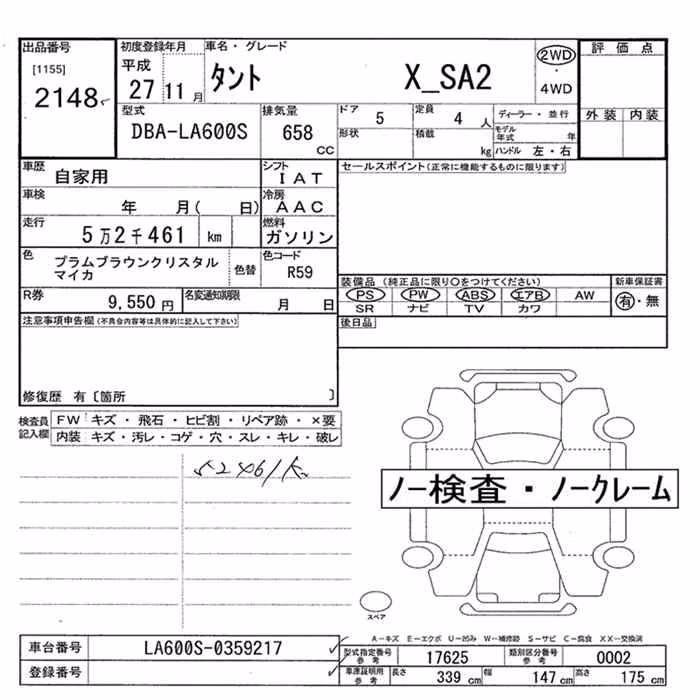 出品番号 初度登録年月 車名・グレード 評価点
[1155] 平成 2WD
2148 27 11月 タント X_SA2 ・
4WD
型式 排気量 ドア 5 定員 4人 ディーラー・並行 外装 内装
DBA-LA600S 658 CC 形状 積載 kg モデル年式 年
ハンドル 左・右
車歴 自家用 シフト IAT セールスポイント(正常に機能するものに限ります)
車検 年 月( 日) 冷房 AAC
走行 5万2千461 km 燃料 ガソリン
色 プラムブラウンクリスタル 色替 色コード
マイカ R59
装備品(純正品に限り○をつけてください) 新車保証書
R券 9,550円 名変通知期限 月 日 PS PW ABS エアB AW 有・無
SR ナビ TV カワ
注意事項申告欄(不具合内容等は具体的に記入して下さい) 後日品
修復歴 有〔箇所 〕
検査員 FW キズ・飛石・ヒビ割・リペア跡・×要
記入欄 内装 キズ・汚レ・コゲ・穴・スレ・キレ・破レ
52461K
ノー検査・ノークレーム
スペア
A-キズ E-エクボ U-凹み W-補修跡 S-サビ C-腐食 XX-交換済
車台番号 LA600S-0359217 型式指定番号 参考 17625 類別区分番号 参考 0002
登録番号 車庫証明用 参考 長さ 339cm 幅 147cm 高さ 175cm